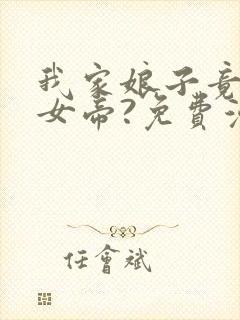 我家娘子竟
女帝?免費
任會斌